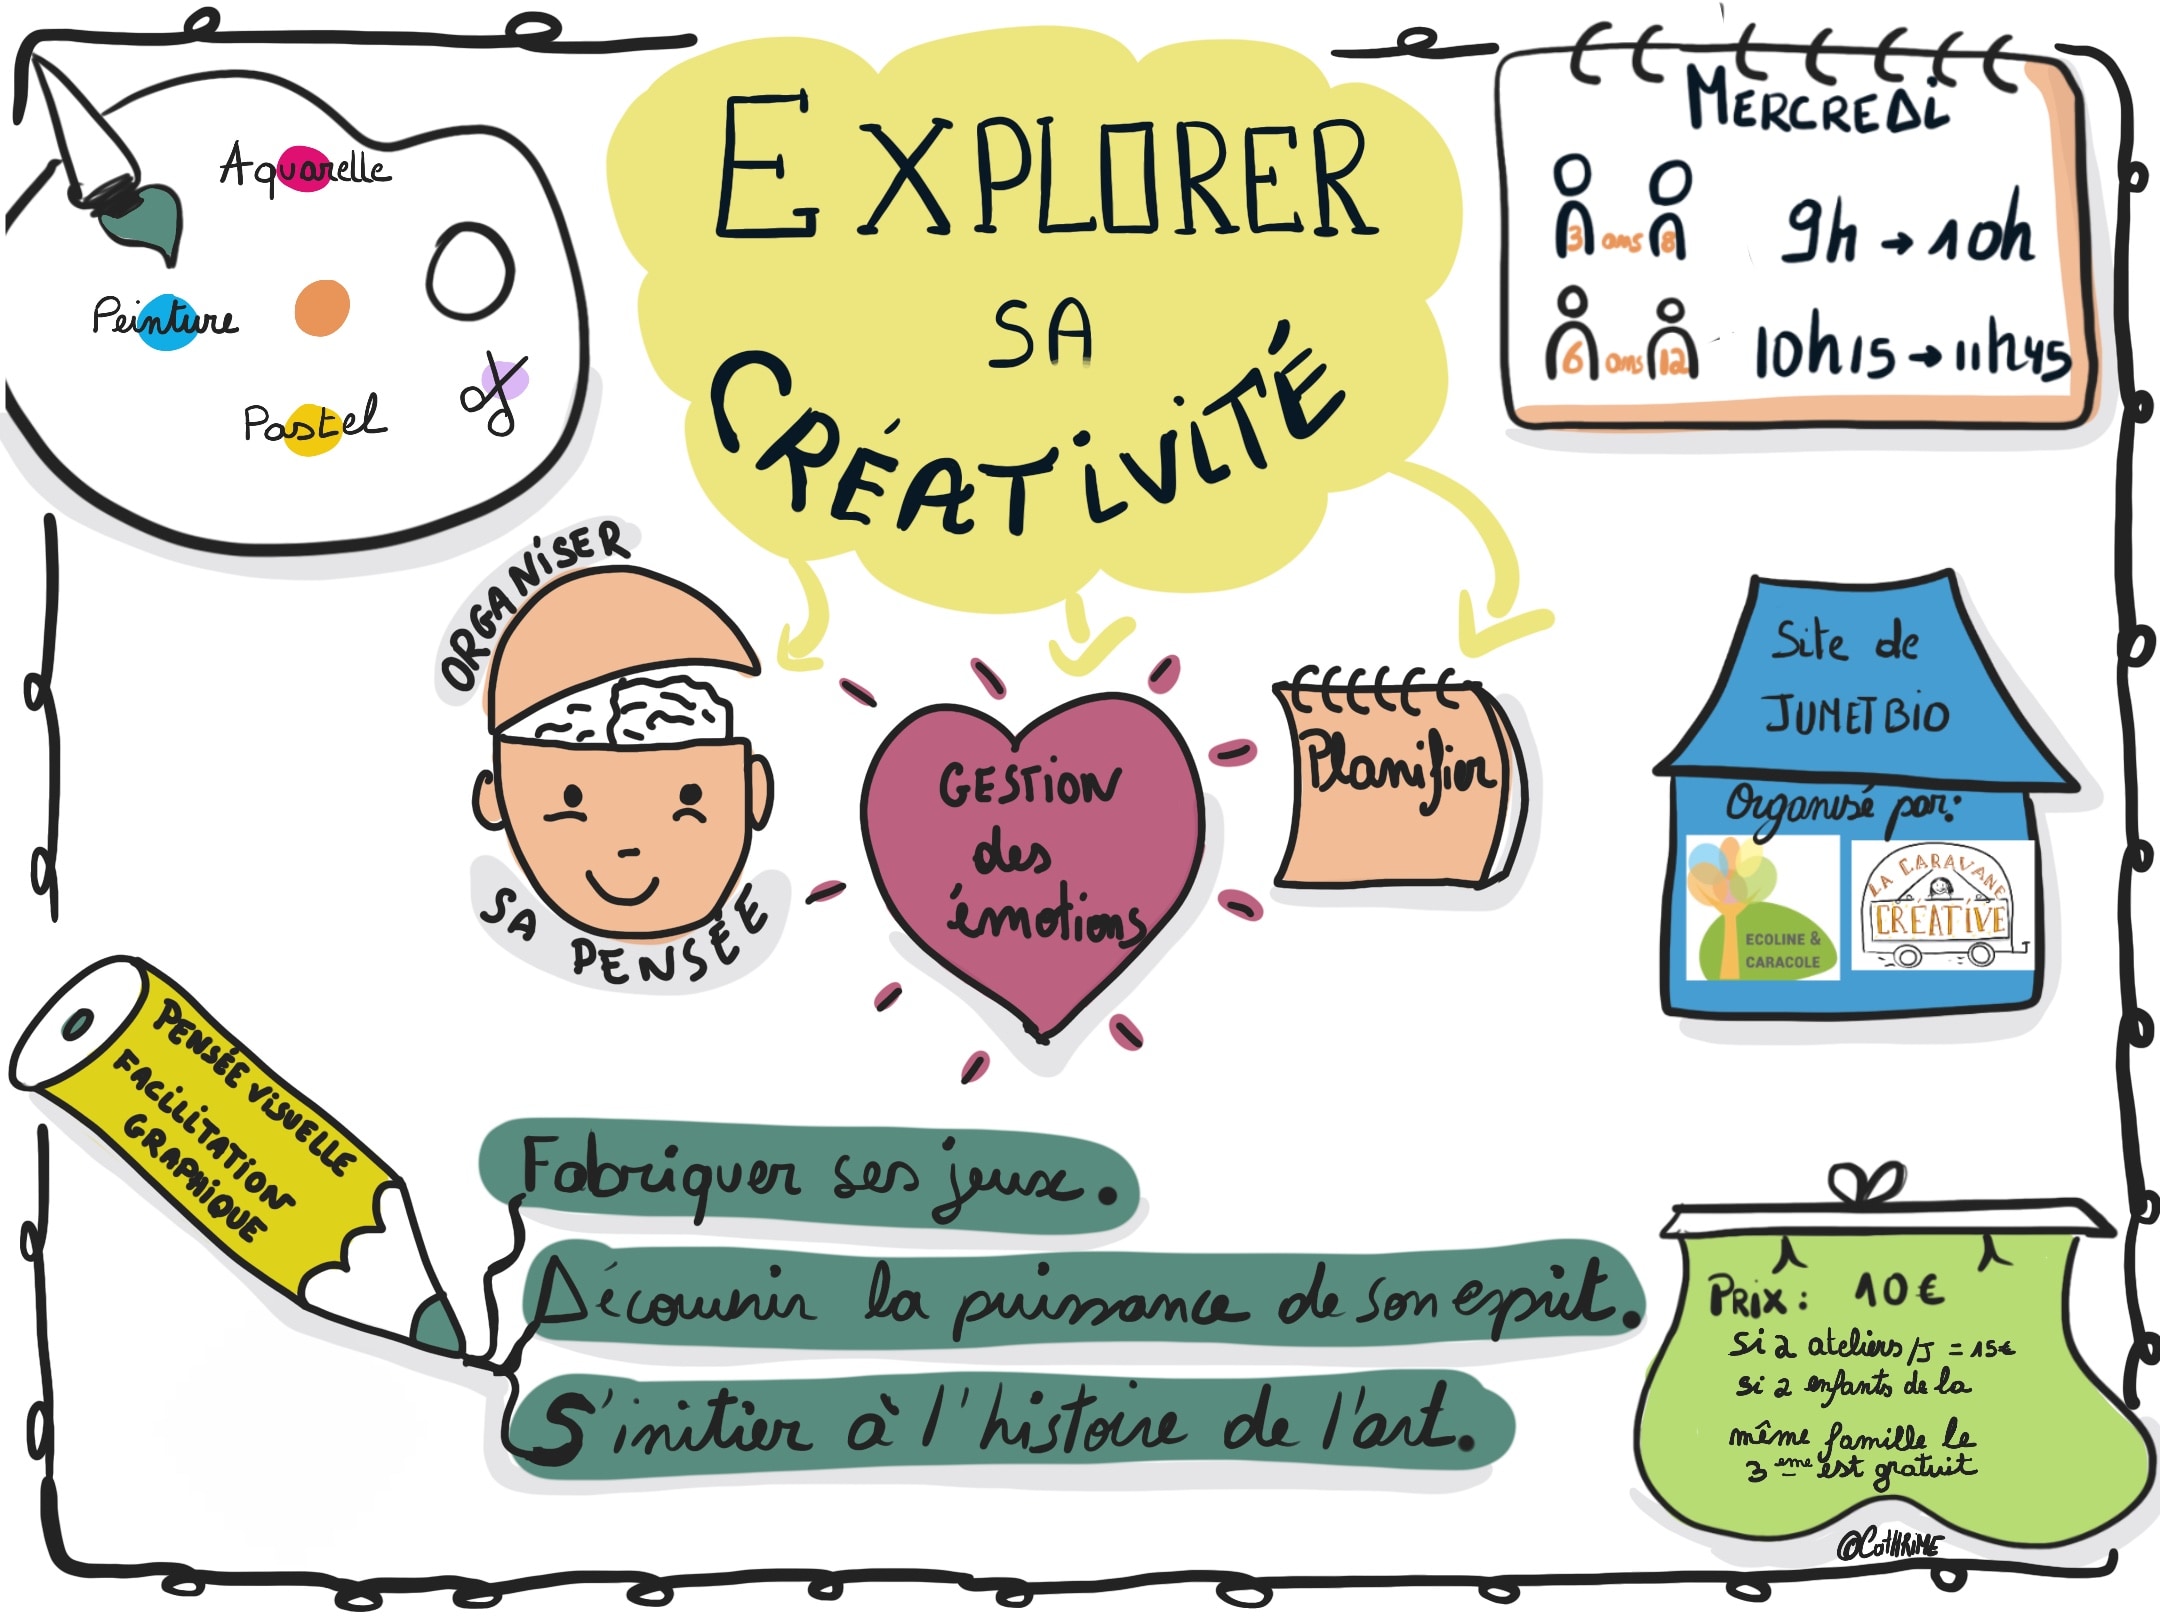 EXPLORER
SA
CRÉATIVITÉ
Aquarelle
Peinture
Pastel
MERCREDI
3 ans 8
9h → 10h
6 ans 12
10h15 → 11h45
ORGANISER
SA PENSÉE
GESTION
des
émotions
Planifier
Site de
JUMETBIO
Organisé par:
ECOLINE &
CARACOLE
LA CARAVANE
CRÉATIVE
PENSÉE VISUELLE
FACILITATION
GRAPHIQUE
Fabriquer ses jeux.
Découvrir la puissance de son esprit.
S'initier à l'histoire de l'art.
PRIX: 10€
Si 2 ateliers/J = 15€
si 2 enfants de la
même famille le
3eme est gratuit